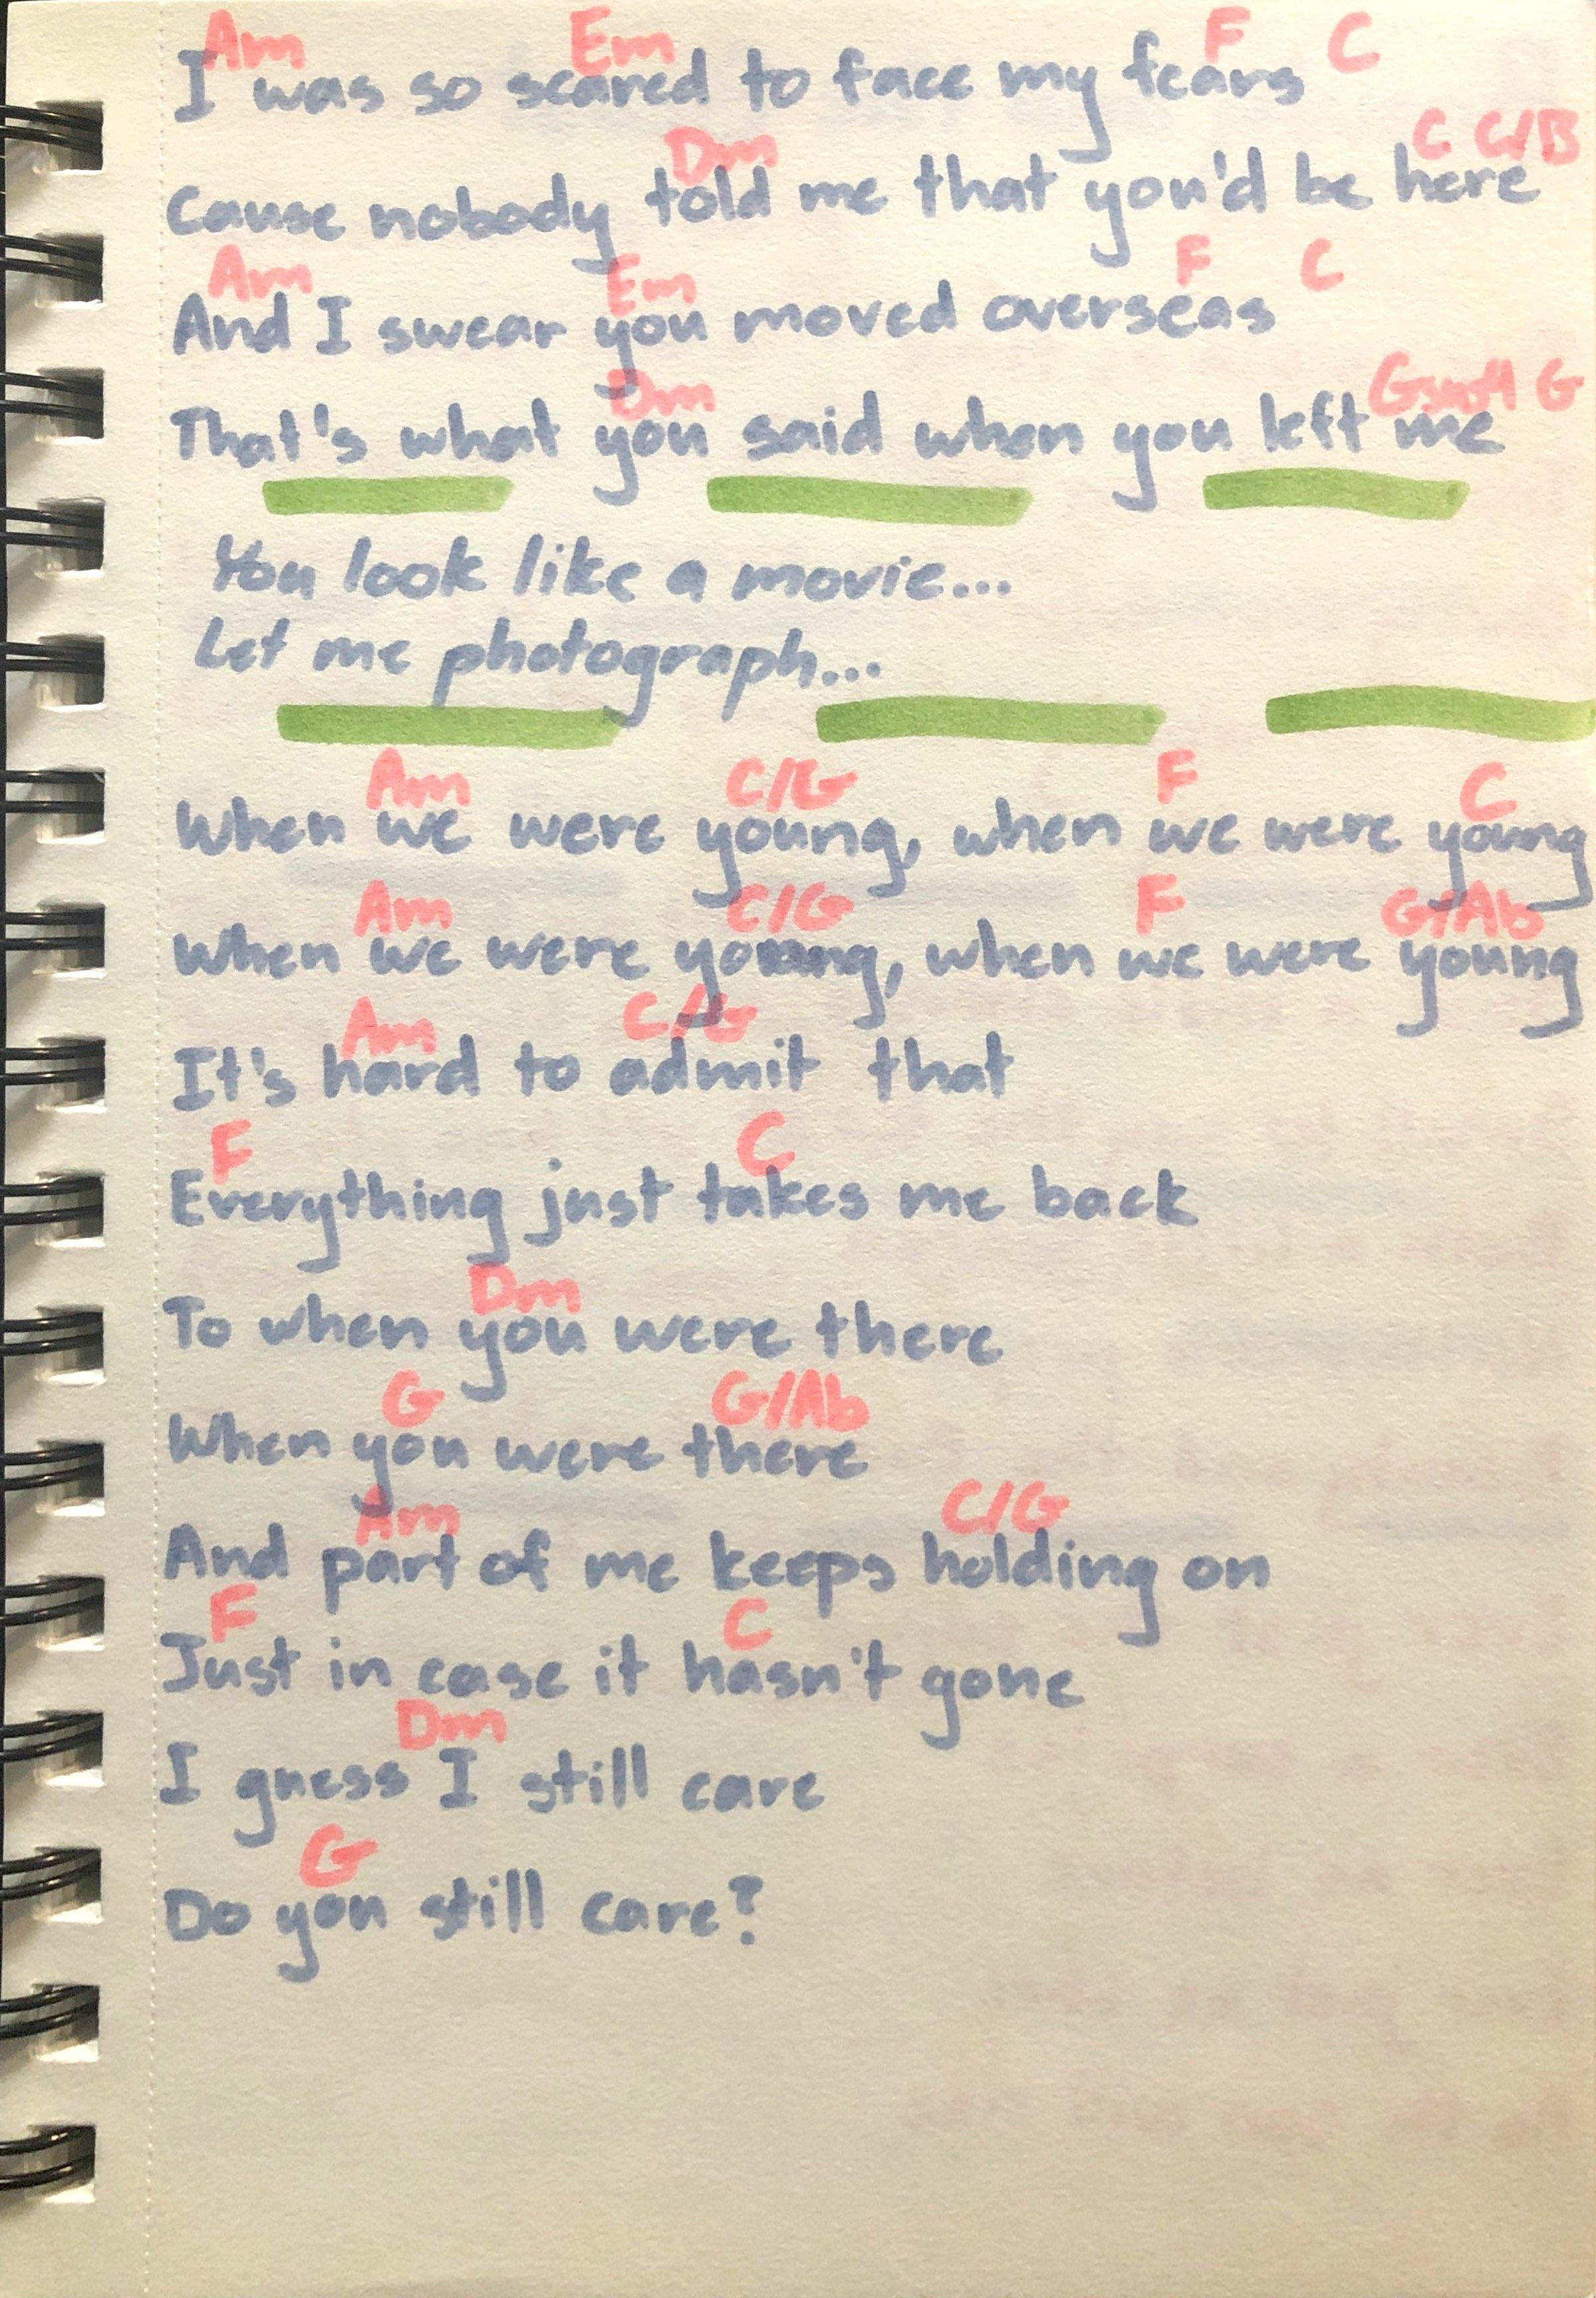 Am Em F C
I was so scared to face my fears
Dm C C/B
Cause nobody told me that you'd be here
Am Em F C
And I swear you moved overseas
Dm Gsus4 G
That's what you said when you left me
You look like a movie...
Let me photograph...
Am C/G F C
When we were young, when we were young
Am C/G F G/Ab
When we were young, when we were young
Am C/G
It's hard to admit that
F C
Everything just takes me back
Dm
To when you were there
G G/Ab
When you were there
Am C/G
And part of me keeps holding on
F C
Just in case it hasn't gone
Dm
I guess I still care
G
Do you still care?